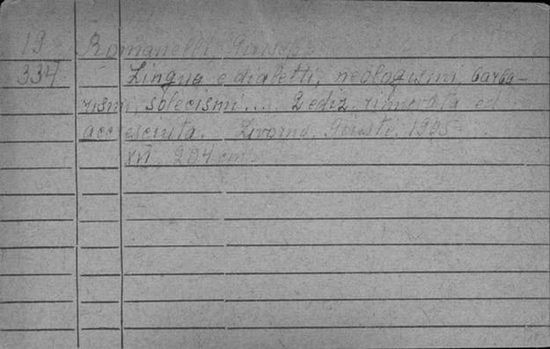 19 Romanelli, Giuseppe
334 Lingua e dialetti, neologismi, barba-
rismi, solecismi... 2 ediz. rinnovata ed
accresciuta. Livorno, Giusti, 1905
XVI, 204 cm